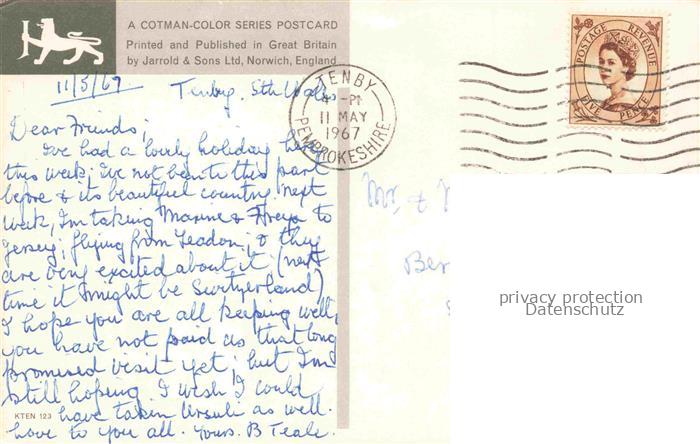 A COTMAN-COLOR SERIES POSTCARD
Printed and Published in Great Britain
by Jarrold & Sons Ltd, Norwich, England
11/5/67
Tenby. Sth Wales
Dear Friends;
I've had a lovely holiday here
this week; I've not been to this part
before & its beautiful country. next
week, I'm taking Maxine & Freya to
Jersey; flying from Yeadon; & they
are very excited about it (next
time it might be Switzerland)
I hope you are all keeping well,
you have not paid us that long
promised visit yet; but I'm
still hoping. I wish I could
have taken Ursuli as well.
love to you all. yours. B Teale.
KTEN 123
TENBY
PM
11 MAY
1967
PEMBROKESHIRE
POSTAGE REVENUE
FIVE PENCE
Mr. &
Ber
privacy protection
Datenschutz